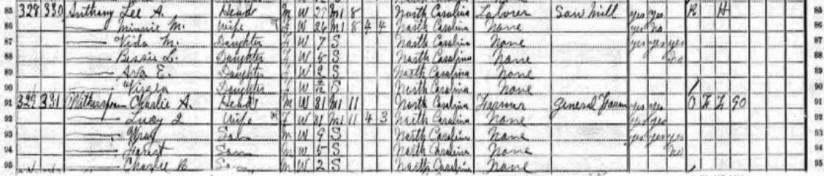 85 328 330 Anthony Lee A. Head M W 27 M 1 8 North Carolina Laborer Saw Mill yes yes R H 85
86 Minnie M. Wife F W 26 M 1 8 4 4 North Carolina None yes no 86
87 Vida M. Daughter F W 7 S North Carolina None yes yes yes 87
88 Bessie L. Daughter F W 5 S North Carolina None no 88
89 Ava E. Daughter F W 2 S North Carolina None 89
90 Daughter F W S North Carolina None 90
91 329 331 Witherspoon Charlie A. Head M W 31 M 1 11 North Carolina Farmer General Farm yes yes O F F 90 91
92 Lucy Wife F W 31 M 1 11 4 3 North Carolina None yes yes 92
93 Wray Son M W 9 S North Carolina None yes yes yes 93
94 Son M W 5 S North Carolina None no 94
95 Charlie B Son M W 2 S North Carolina None 95